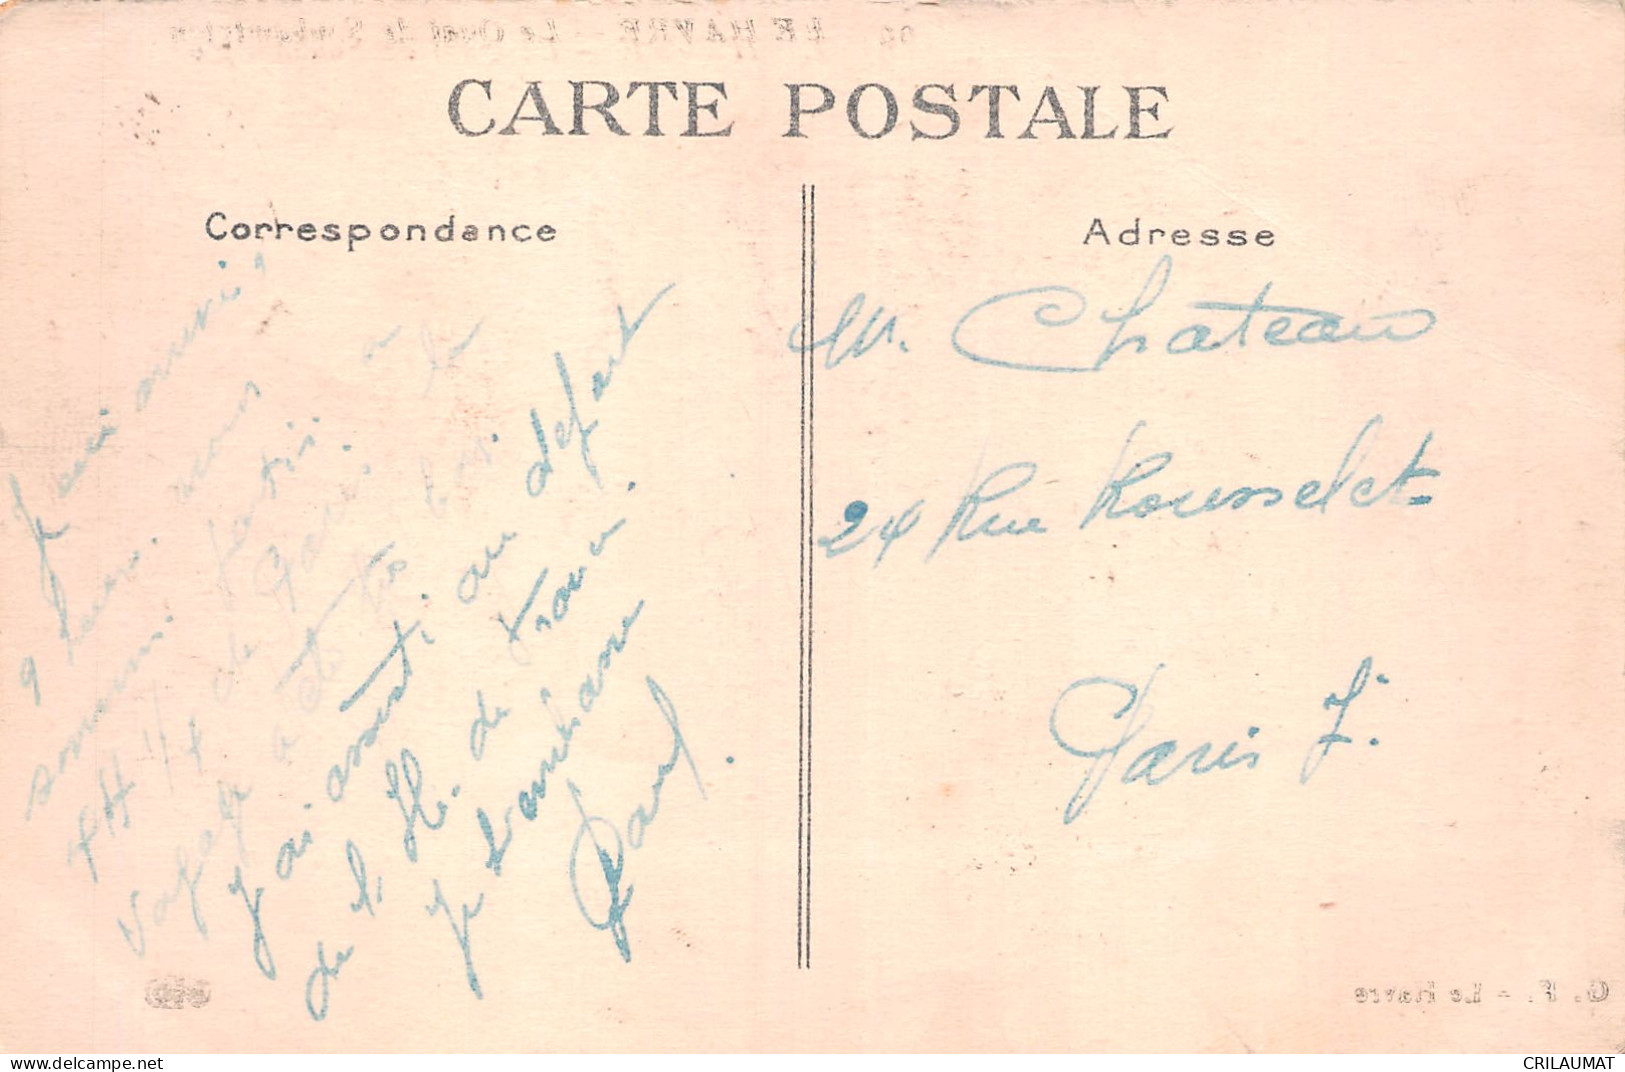 LE HAVRE - Le Quai de Southampton
CARTE POSTALE
Correspondance
Adresse
Je suis arrivé à
9 heures. nous
sommes partis à
4H 1/4 de Paris le
voyage a été très bon.
j'ai assisté au départ
de l' Ile de France.
je t'embrasse
Paul.
M. Chateau
24 Rue Rousselet
Paris 7.
G. F. - Le Havre
delcampe.net
CRILAUMAT